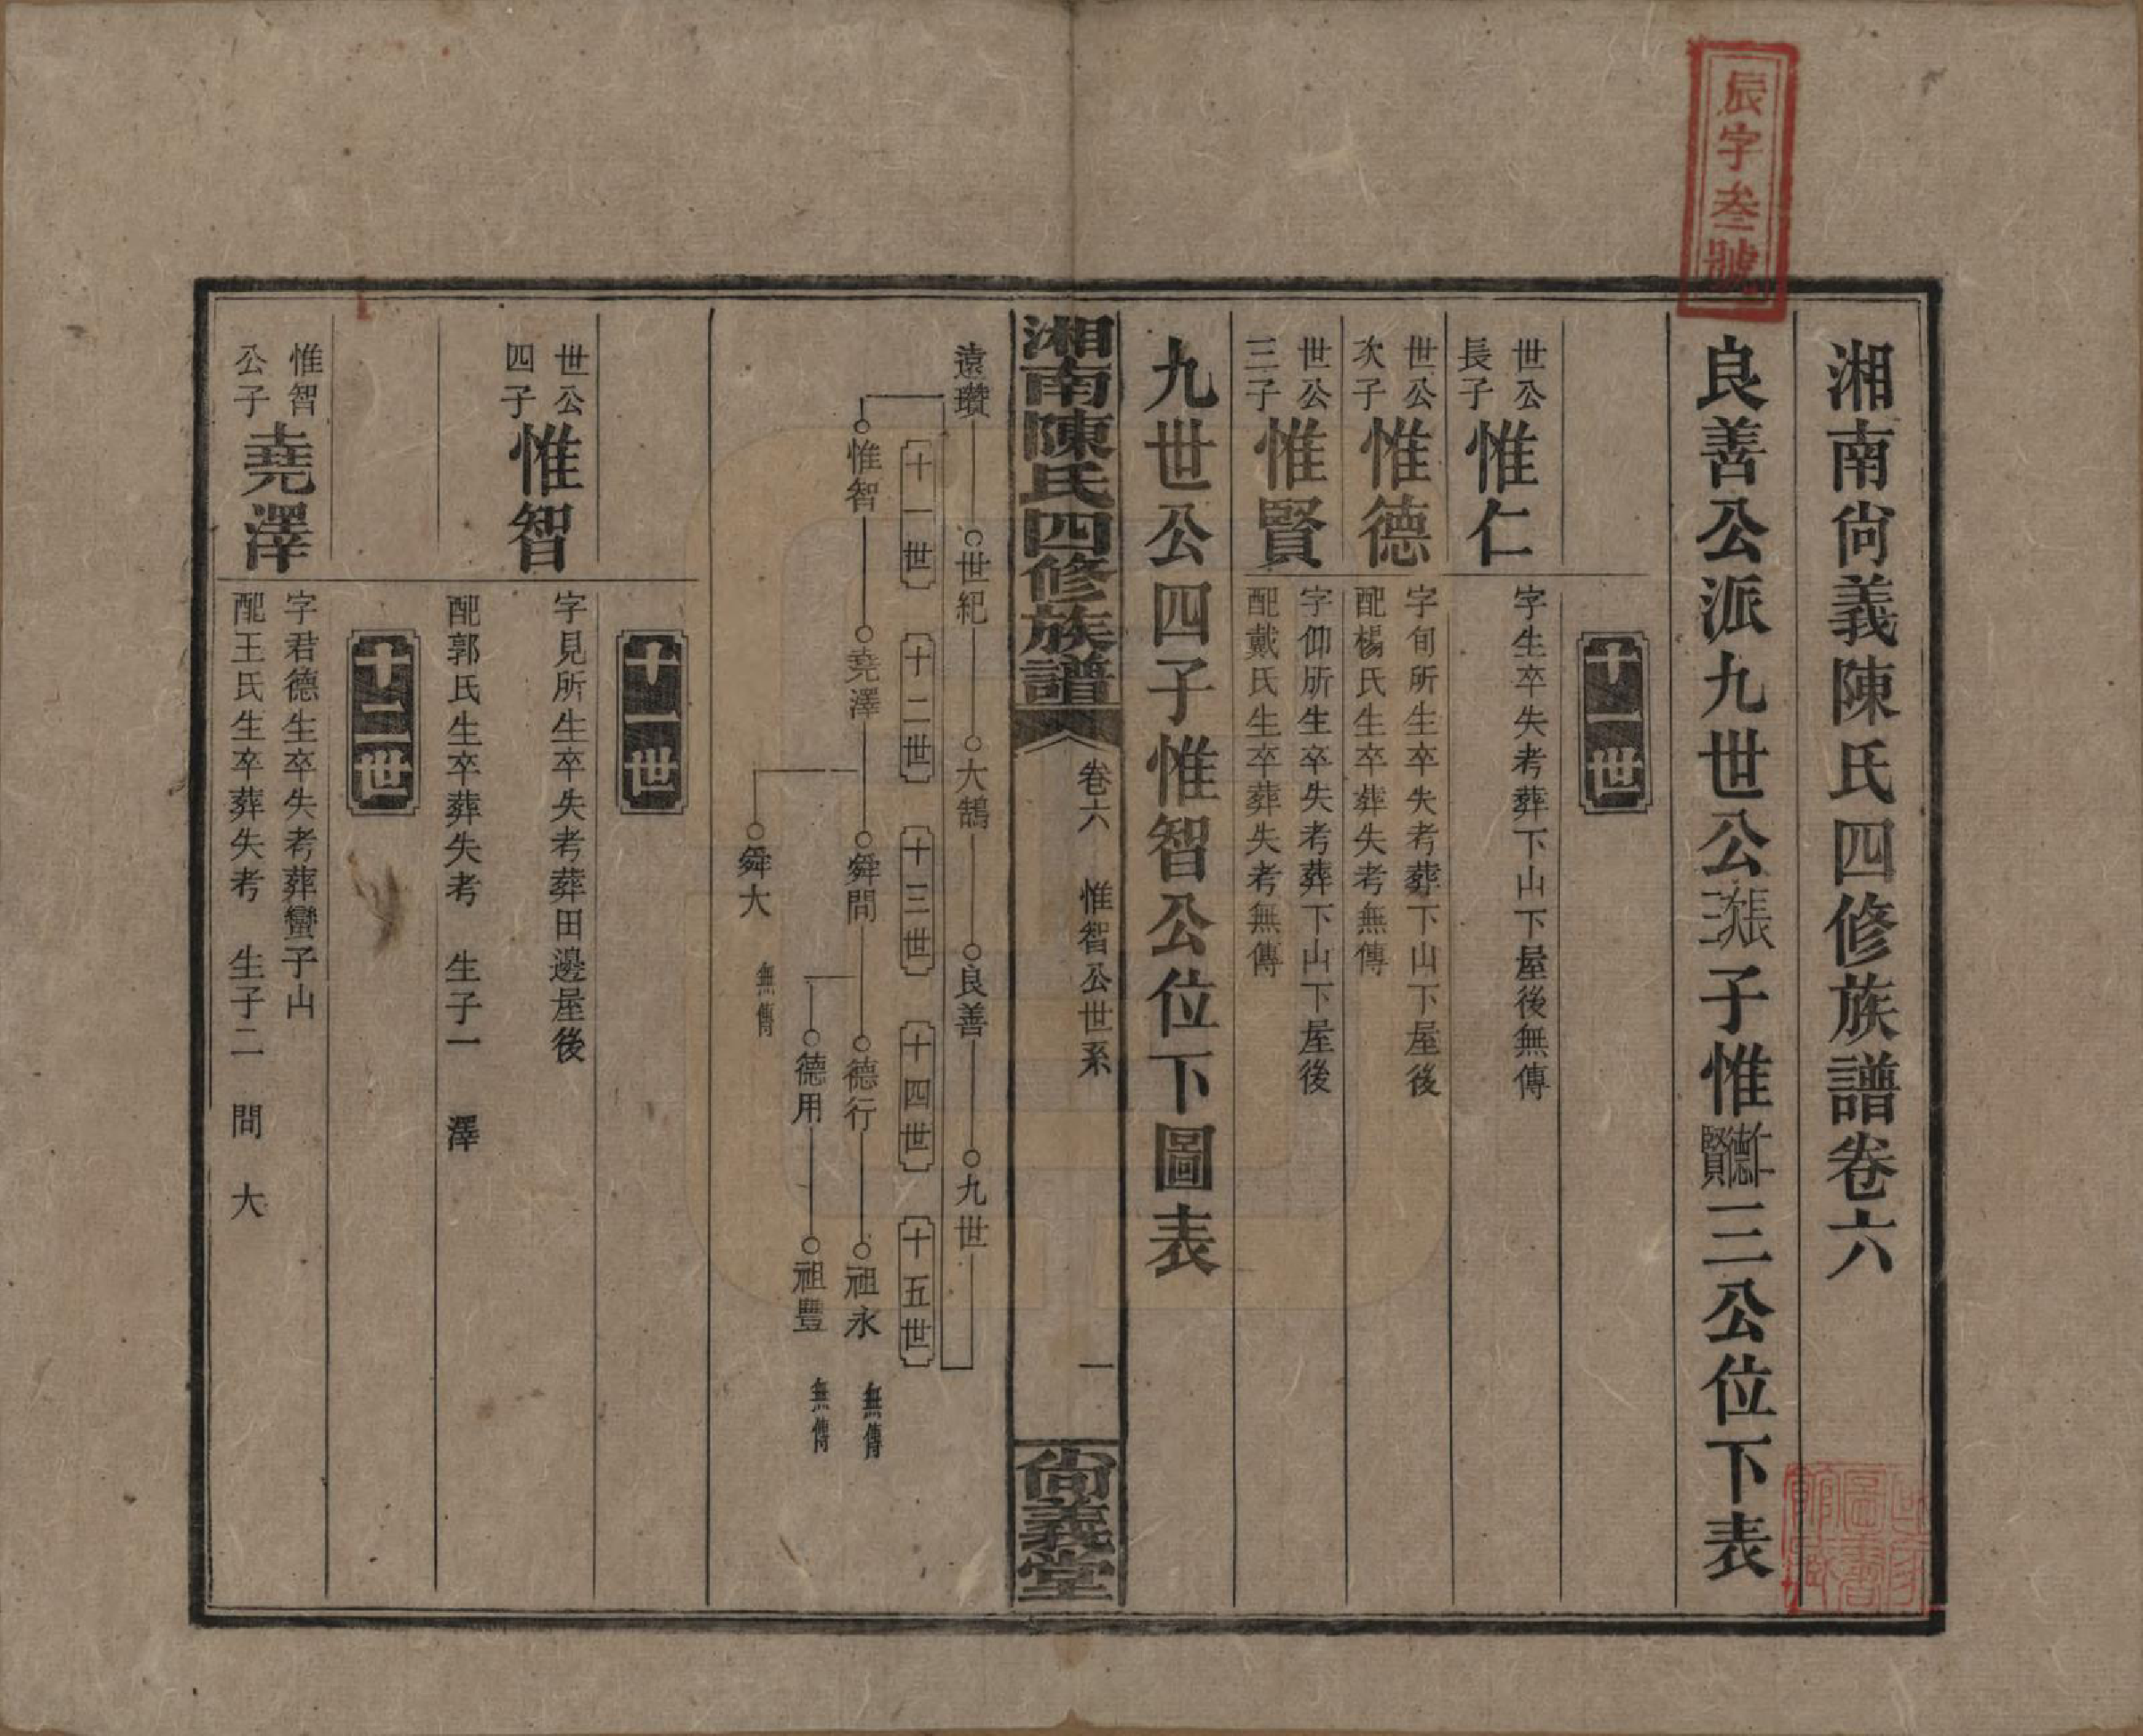 辰字叁號
湘南尙義陳氏四修族譜卷六
良善公派九世公長次三子惟仁德賢三公位下表
十一世
世公長子惟仁
字生卒失考葬下山下屋後無傳
世公次子惟德
字旬所生卒失考葬下山下屋後
配楊氏生卒葬失考無傳
世公三子惟賢
字仰所生卒失考葬下山下屋後
配戴氏生卒葬失考無傳
九世公四子惟智公位下圖表
湘南陳氏四修族譜
卷六 惟智公世系
一
尙義堂
遠瓚 世紀 大鵠 良善 九世
十一世 十二世 十三世 十四世 十五世
惟智 堯澤 舜間 德行 祖永 無傳
德用 祖豐 無傳
舜大 無傳
十一世
世公四子惟智
字見所生卒失考葬田邊屋後
配郭氏生卒葬失考 生子一 澤
十二世
惟智公子堯澤
字君德生卒失考葬蠻子山
配王氏生卒葬失考 生子二 間 大